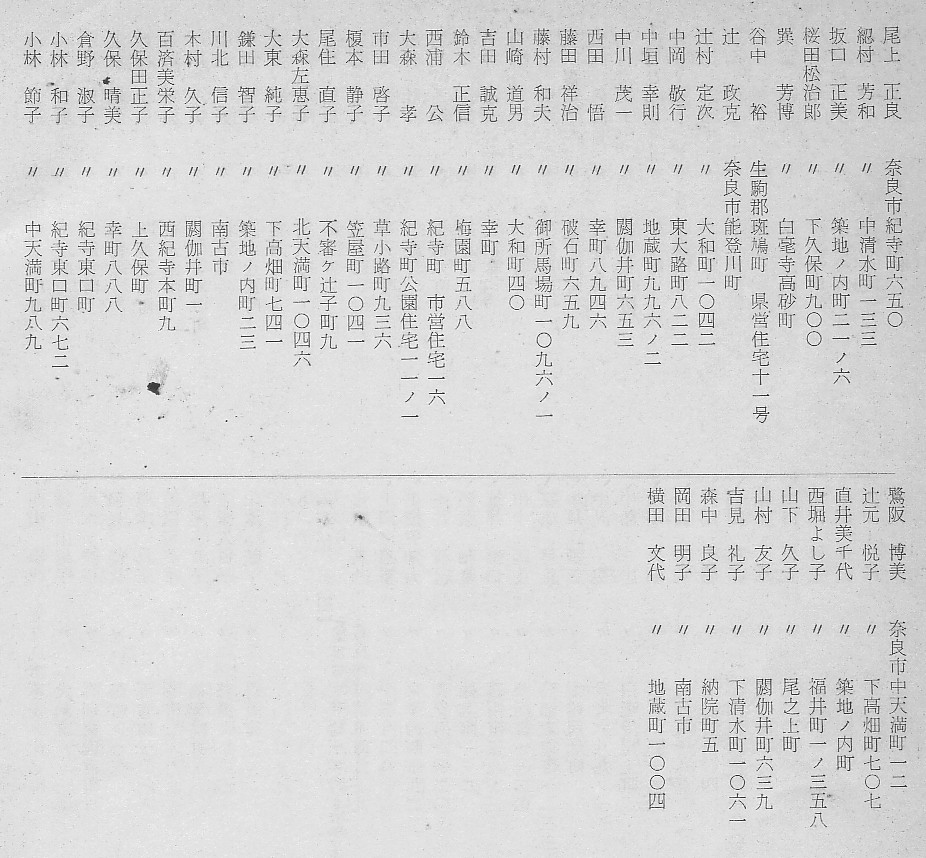 尾上 正良 奈良市紀寺町六五〇
總村 芳和 〃 中清水町一三三
坂口 正美 〃 築地ノ内町二一ノ六
桜田松治郎 〃 下久保町九〇〇
巽 芳博 〃 白毫寺高砂町
谷中 裕 生駒郡斑鳩町 県営住宅十一号
辻 政克 奈良市能登川町
辻村 定次 〃 大和町一〇四二
中岡 敬行 〃 東大路町八二二
中垣 幸則 〃 地蔵町九九六ノ二
中川 茂一 〃 閼伽井町六五三
西田 悟 〃 幸町八九四六
藤田 祥治 〃 破石町六五九
藤村 和夫 〃 御所馬場町一〇九六ノ一
山崎 道男 〃 大和町四〇
吉田 誠克 〃 幸町
鈴木 正信 〃 梅園町五八八
西浦 公 〃 紀寺町 市営住宅一六
大森 孝 〃 紀寺町公園住宅一一ノ一
市田 啓子 〃 草小路町九三六
榎本 静子 〃 笠屋町一〇四一
尾住 直子 〃 不審ケ辻子町九
大森左恵子 〃 北天満町一〇四六
大東 純子 〃 下高畑町七四一
鎌田 智子 〃 築地ノ内町二三
川北 信子 〃 南古市
木村 久子 〃 閼伽井町一
百済美栄子 〃 西紀寺本町九
久保田正子 〃 上久保町
久保 晴美 〃 幸町八八八
倉野 淑子 〃 紀寺東口町
小林 和子 〃 紀寺東口町六七二
小林 節子 〃 中天満町九八九
鷺阪 博美 奈良市中天満町一二
辻元 悦子 〃 下高畑町七〇七
直井美千代 〃 築地ノ内町
西堀よし子 〃 福井町一ノ三五八
山下 久子 〃 尾之上町
山村 友子 〃 閼伽井町六三九
吉見 礼子 〃 下清水町一〇六一
森中 良子 〃 納院町五
岡田 明子 〃 南古市
横田 文代 〃 地蔵町一〇〇四